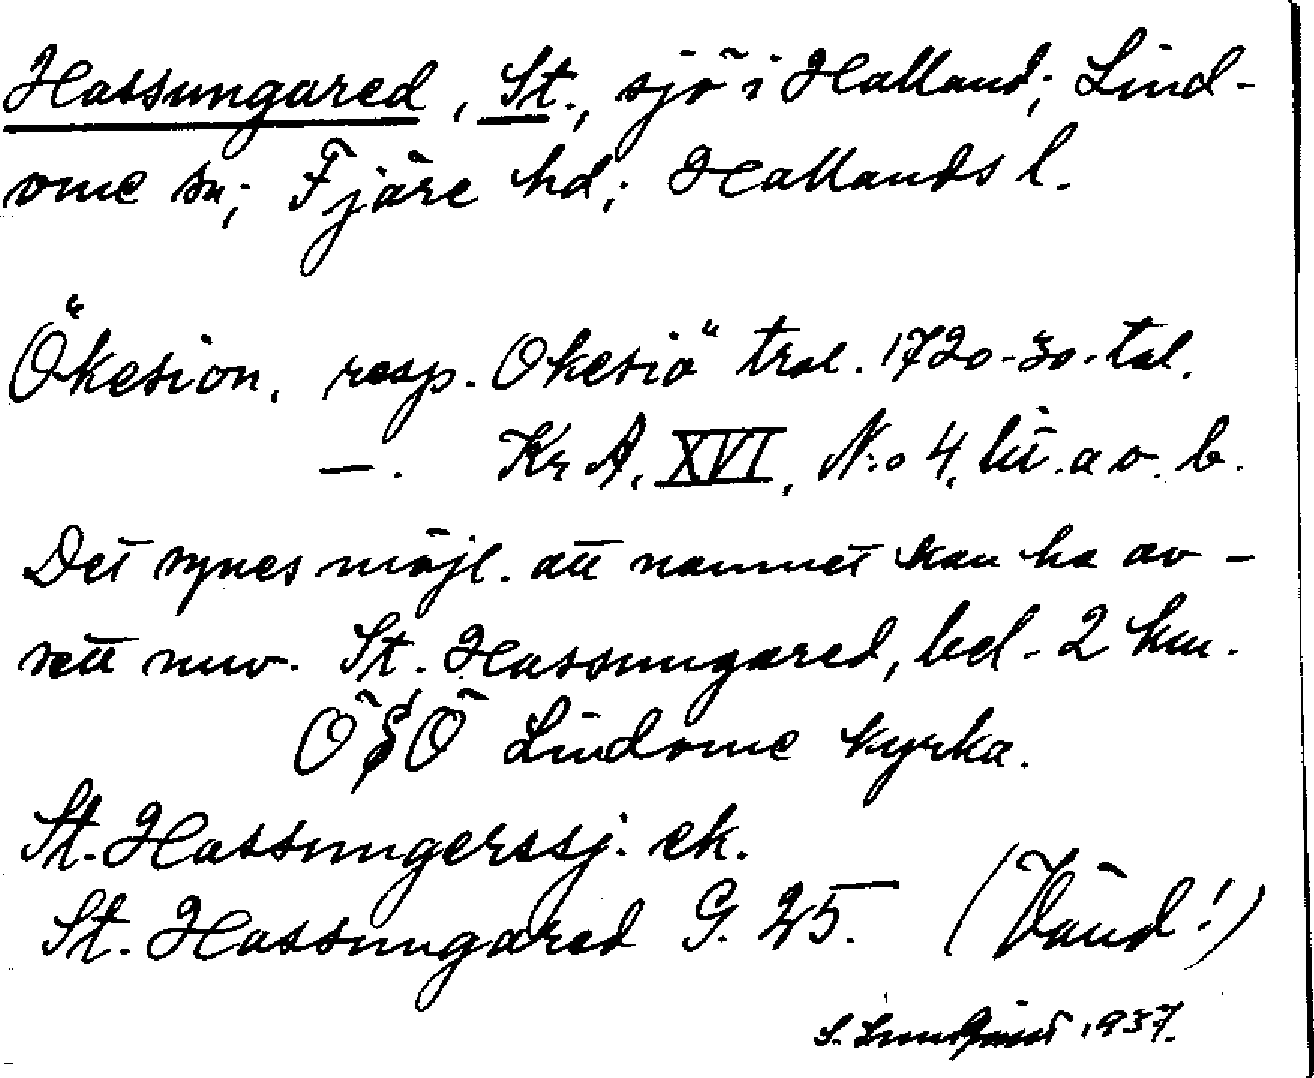 Hassungared, St., sjö i Halland; Lind-
ome sn; Fjäre hd; Hallands l.
"Ökesion, resp. Okesiö" trol. 1720-30-tal.
—. Kr A. XVI, N:o 4, lit. a o. b.
Det synes möjl. att namnet kan ha av-
sett nuv. St. Hassungared, bel. 2 km.
ÖSÖ Lindome kyrka.
St. Hassungerssj. ek.
St. Hassungared G. 25. (Vänd!)
S. Lundquist 1937.